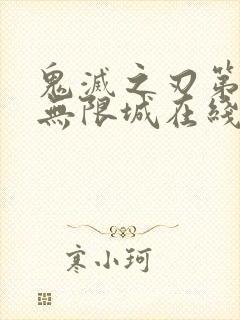 鬼滅之刃第
無限城在綫
寒小珂